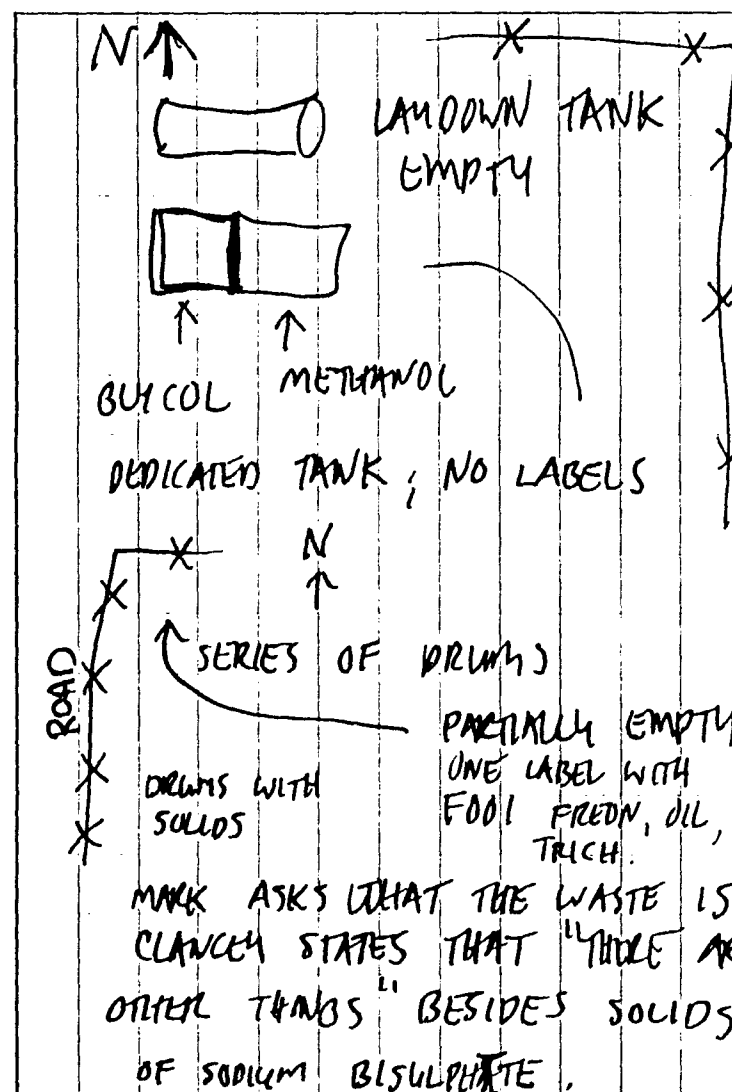 N
LAYDOWN TANK
EMPTY
GLYCOL METHANOL
DEDICATED TANK; NO LABELS
N
ROAD
SERIES OF DRUMS
PARTIALLY EMPTY
DRUMS WITH
SOLIDS
ONE LABEL WITH
F001 FREON, OIL,
TRICH.
MARK ASKS WHAT THE WASTE IS
CLANCEY STATES THAT "THERE AR
OTHER THINGS" BESIDES SOLIDS
OF SODIUM BISULPHATE.